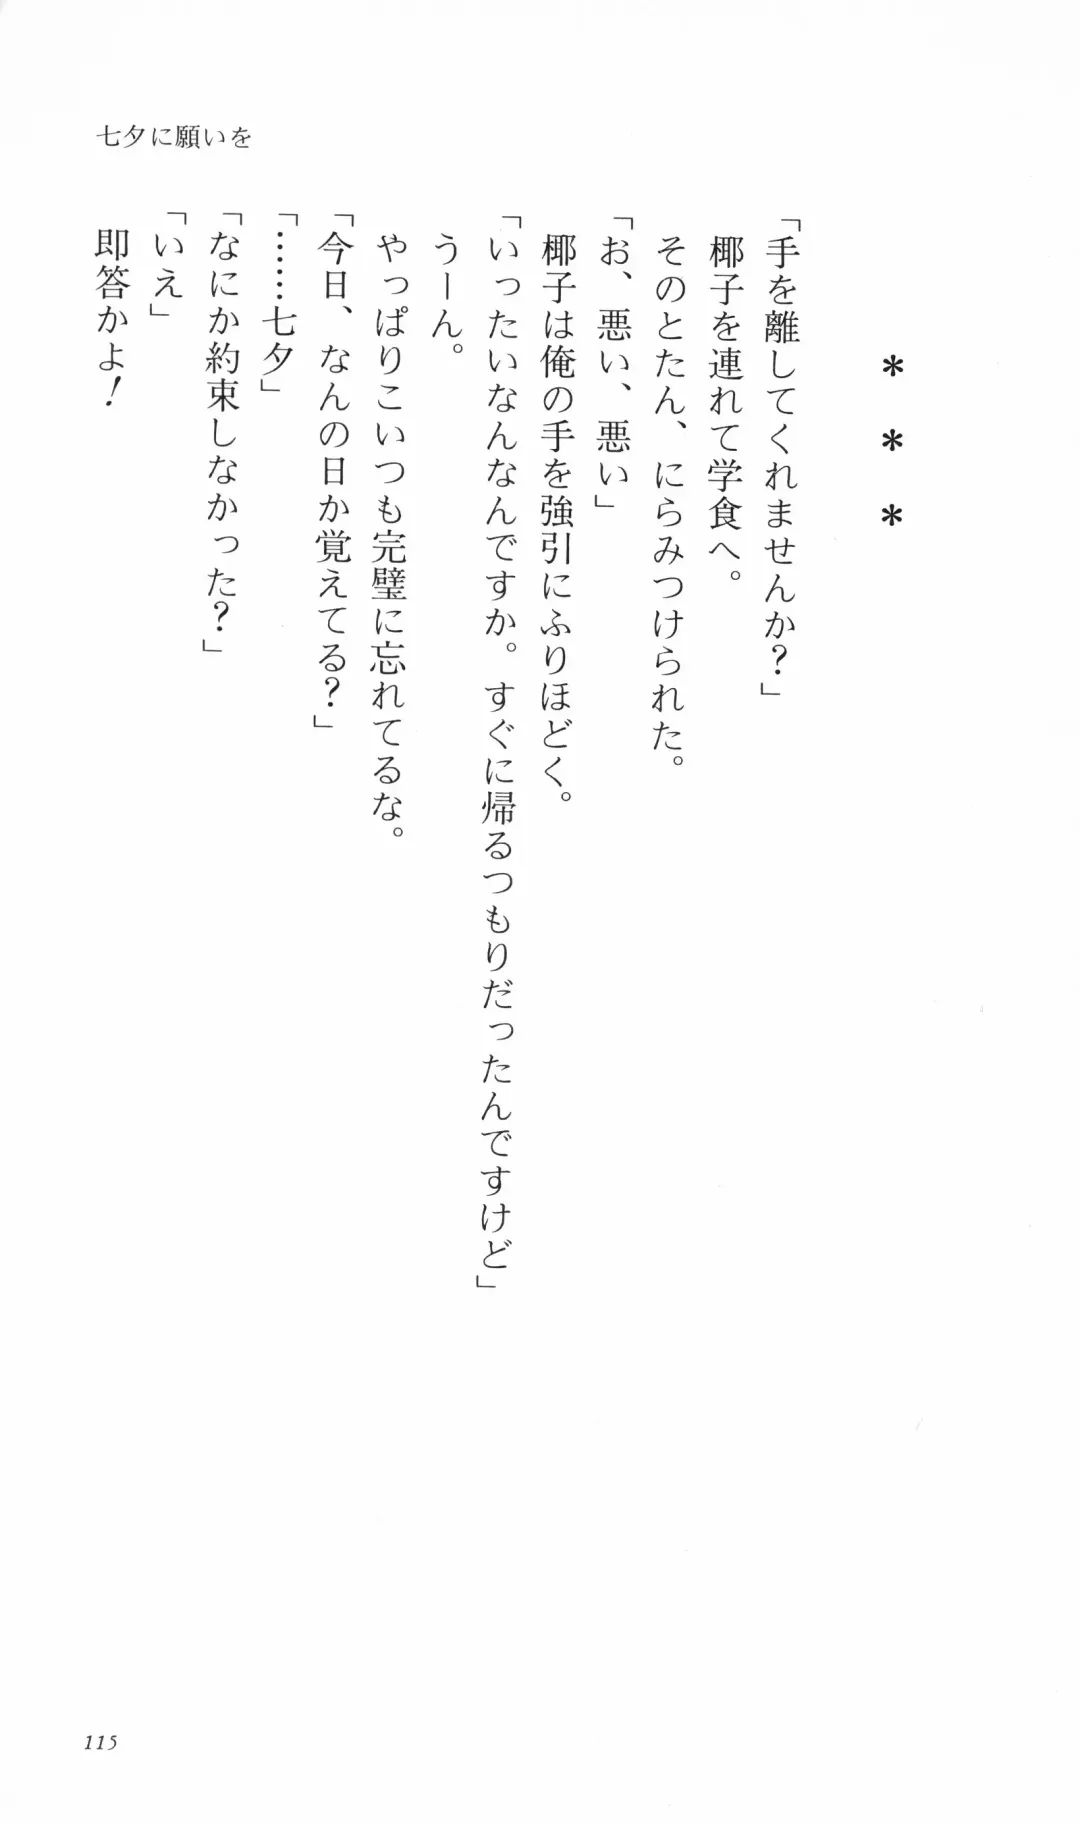 七夕に願いを
＊　＊　＊
「手を離してくれませんか？」
椰子を連れて学食へ。
そのとたん、にらみつけられた。
「お、悪い、悪い」
椰子は俺の手を強引にふりほどく。
「いったいなんなんですか。すぐに帰るつもりだったんですけど」
うーん。
やっぱりこいつも完璧に忘れてるな。
「今日、なんの日か覚えてる？」
「……七夕」
「なにか約束しなかった？」
「いえ」
即答かよ！
115